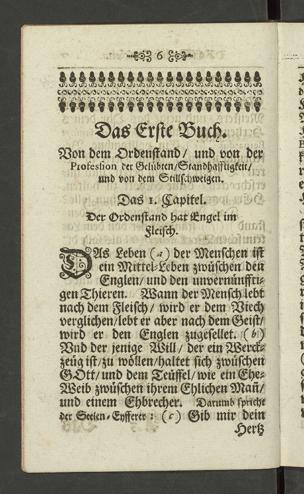 6
Das Erste Buch.
Von dem Ordenstand/ und von der
Profession der Gelübten/Standhafftigkeit/
und von dem Stillschweigen.
Das 1. Capitel.
Der Ordenstand hat Engel im
Fleisch.
DAs Leben (a) der Menschen ist
ein Mittel-Leben zwüschen den
Englen/ und den unvernünffti-
gen Thieren. Wann der Mensch lebt
nach dem Fleisch/ wird er dem Viech
verglichen/lebt er aber nach dem Geist/
wird er den Englen zugesellet. (b)
Vnd der jenige Will/ der ein Werck-
zeüg ist/ zu wöllen/haltet sich zwüschen
GOtt/ und dem Teüffel/ wie ein Ehe-
Weib zwüschen ihrem Ehlichen Mañ/
und einem Ehbrecher. Darumb spricht
der Seelen-Eyfferer: (c) Gib mir dein
Hertz